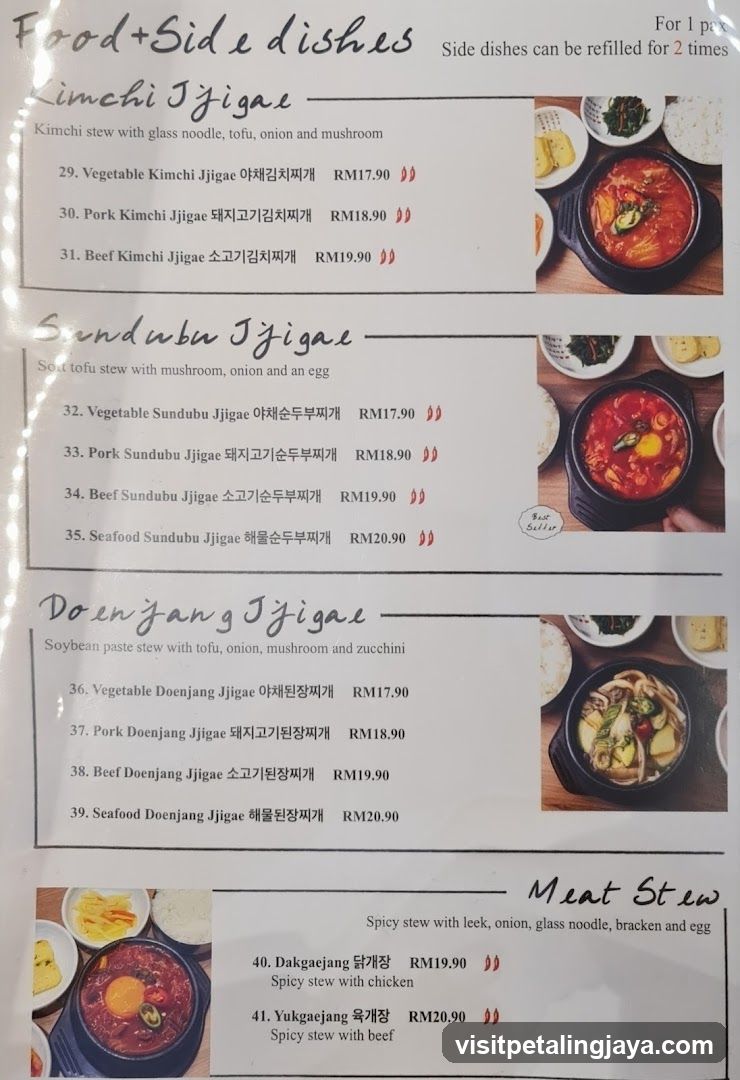 Food+Side dishes
For 1 pax
Side dishes can be refilled for 2 times
Kimchi Jjigae
Kimchi stew with glass noodle, tofu, onion and mushroom
29. Vegetable Kimchi Jjigae 야채김치찌개 RM17.90
30. Pork Kimchi Jjigae 돼지고기김치찌개 RM18.90
31. Beef Kimchi Jjigae 소고기김치찌개 RM19.90
Sundubu Jjigae
Soft tofu stew with mushroom, onion and an egg
32. Vegetable Sundubu Jjigae 야채순두부찌개 RM17.90
33. Pork Sundubu Jjigae 돼지고기순두부찌개 RM18.90
34. Beef Sundubu Jjigae 소고기순두부찌개 RM19.90
35. Seafood Sundubu Jjigae 해물순두부찌개 RM20.90
Best
Seller
Doenjang Jjigae
Soybean paste stew with tofu, onion, mushroom and zucchini
36. Vegetable Doenjang Jjigae 야채된장찌개 RM17.90
37. Pork Doenjang Jjigae 돼지고기된장찌개 RM18.90
38. Beef Doenjang Jjigae 소고기된장찌개 RM19.90
39. Seafood Doenjang Jjigae 해물된장찌개 RM20.90
Meat Stew
Spicy stew with leek, onion, glass noodle, bracken and egg
40. Dakgaejang 닭개장 RM19.90
Spicy stew with chicken
41. Yukgaejang 육개장 RM20.90
Spicy stew with beef
visitpetalingjaya.com